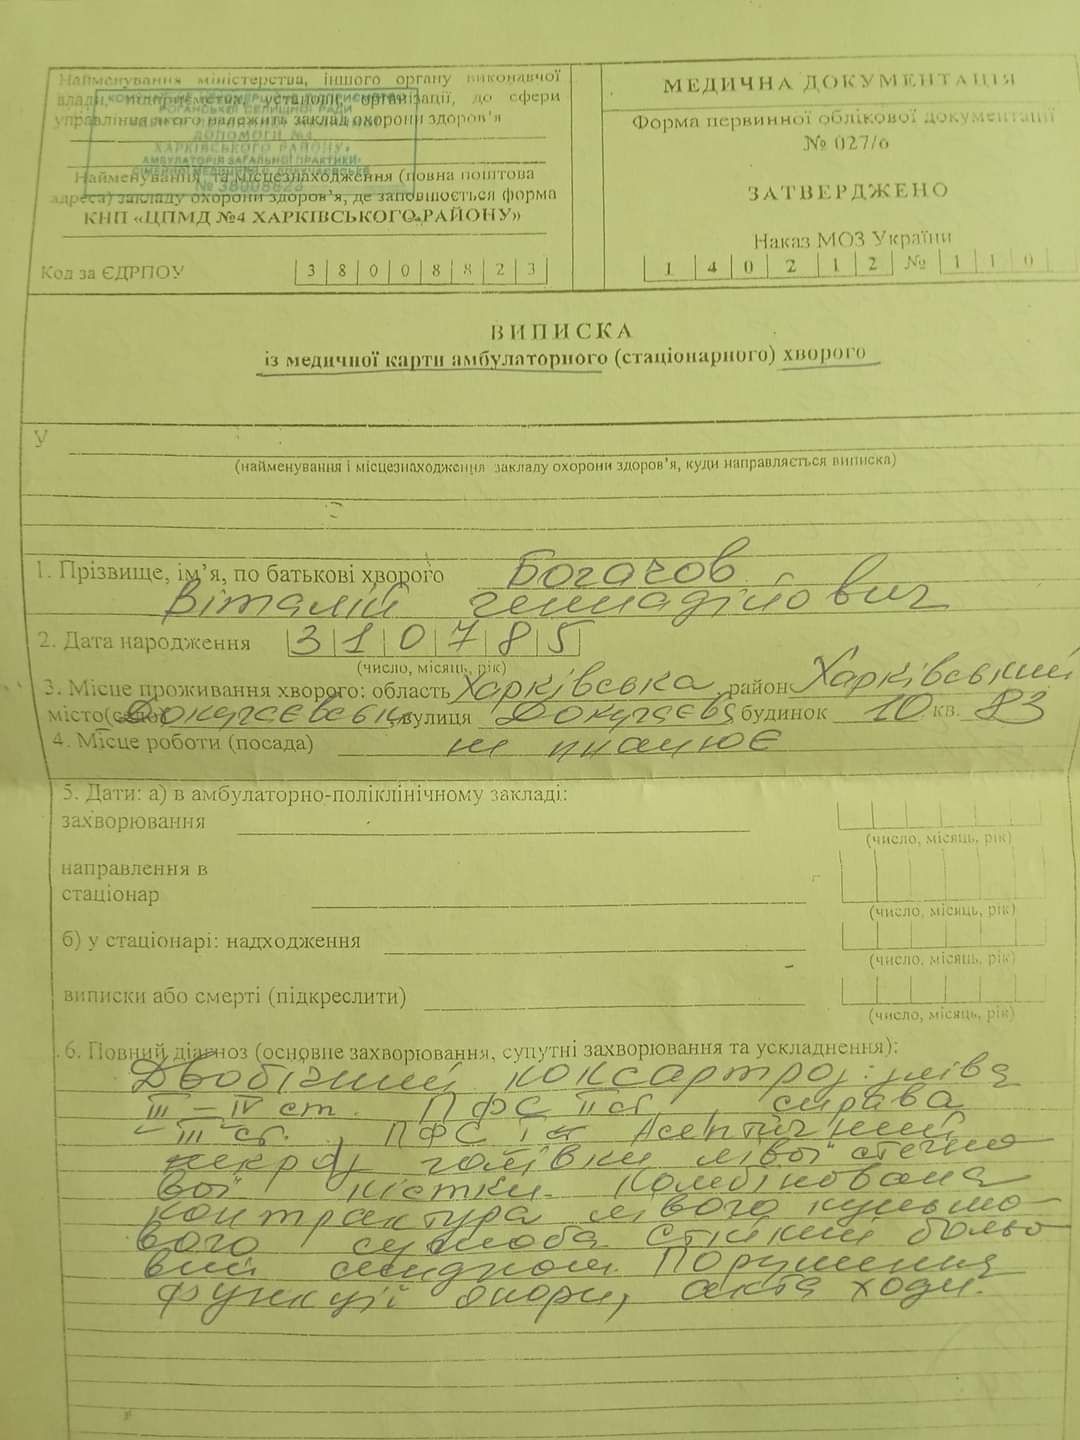 Найменування міністерства, іншого органу виконавчої
влади, підприємства, установи, організації, до сфери
управління якого належить заклад охорони здоров’я
ДОПОМОГИ №4
ХАРКІВСЬКОГО РАЙОНУ
АМБУЛАТОРІЯ ЗАГАЛЬНОЇ ПРАКТИКИ
№ 38008823
Найменування та місцезнаходження (повна поштова
адреса) закладу охорони здоров’я, де заповнюється форма
КНП «ЦПМД №4 ХАРКІВСЬКОГО РАЙОНУ»
Код за ЄДРПОУ 3 8 0 0 8 8 2 3
МЕДИЧНА ДОКУМЕНТАЦІЯ
Форма первинної облікової документації
№ 027/о
ЗАТВЕРДЖЕНО
Наказ МОЗ України
1 4 0 2 1 2 № 1 1 0
ВИПИСКА
із медичної карти амбулаторного (стаціонарного) хворого
У
(найменування і місцезнаходження закладу охорони здоров’я, куди направляється виписка)
1. Прізвище, ім’я, по батькові хворого Богачов
Віталій Геннадійович
2. Дата народження 3 1 0 7 8 5
(число, місяць, рік)
3. Місце проживання хворого: область Харківська район Харківський
місто(село) вулиця будинок 10 кв. 83
4. Місце роботи (посада) не працює
5. Дати: а) в амбулаторно-поліклінічному закладі:
захворювання
(число, місяць, рік)
направлення в
стаціонар
(число, місяць, рік)
б) у стаціонарі: надходження
(число, місяць, рік)
виписки або смерті (підкреслити)
(число, місяць, рік)
6. Повний діагноз (основне захворювання, супутні захворювання та ускладнення):
Двобічний коксартроз: зліва
III – IV ст. ПФС II ст., справа
– III ст., ПФС I ст Асептичний
некроз голівки лівої стегно
вої кістки. Комбінована
контрактура лівого кульшо
вого суглоба. Стійкий больо
вий синдром. Порушення
функції опори, акта ходи.